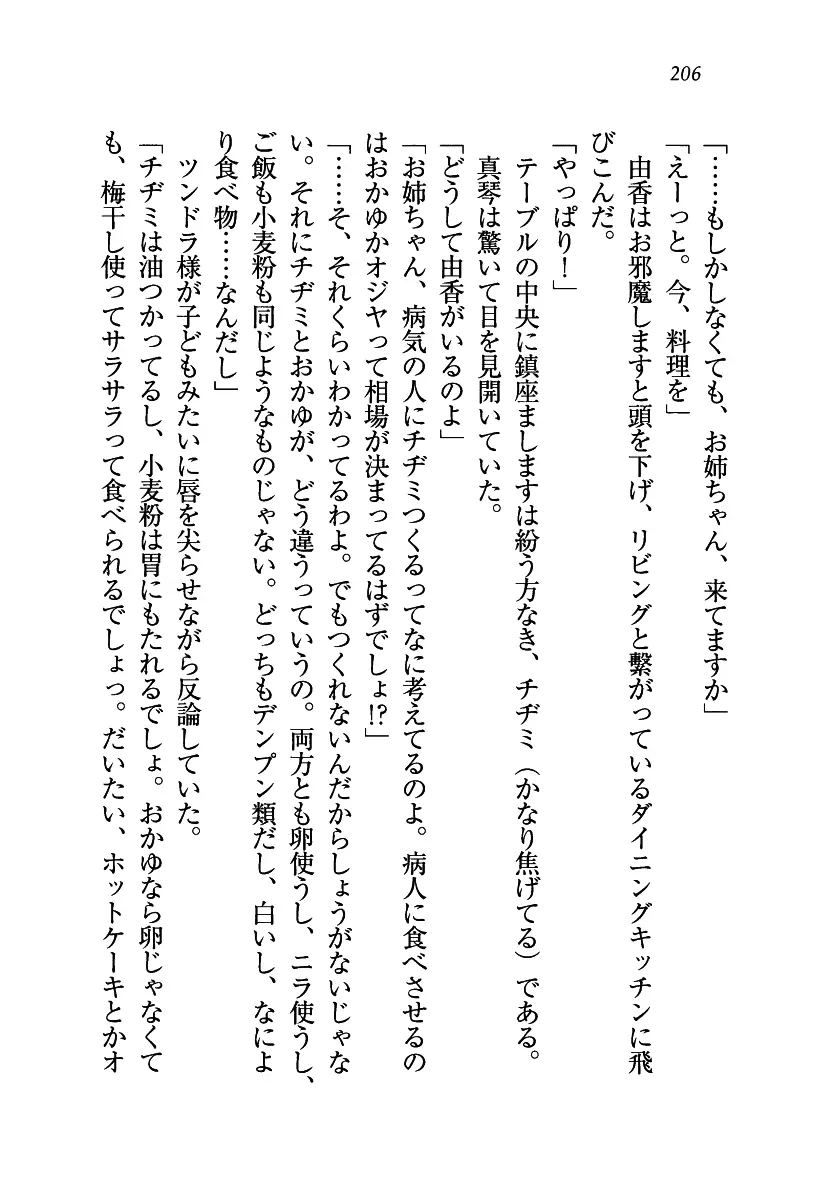 206
「……もしかしなくても、お姉ちゃん、来てますか」
「えーっと。今、料理を」
　由香はお邪魔しますと頭を下げ、リビングと繋がっているダイニングキッチンに飛
びこんだ。
「やっぱり！」
　テーブルの中央に鎮座ましますは紛う方なき、チヂミ（かなり焦げてる）である。
　真琴は驚いて目を見開いていた。
「どうして由香がいるのよ」
「お姉ちゃん、病気の人にチヂミつくるってなに考えてるのよ。病人に食べさせるの
はおかゆかオジヤって相場が決まってるはずでしょ!?」
「……そ、それくらいわかってるわよ。でもつくれないんだからしょうがないじゃな
い。それにチヂミとおかゆが、どう違うっていうの。両方とも卵使うし、ニラ使うし、
ご飯も小麦粉も同じようなものじゃない。どっちもデンプン類だし、白いし、なによ
り食べ物……なんだし」
　ツンドラ様が子どもみたいに唇を尖らせながら反論していた。
「チヂミは油つかってるし、小麦粉は胃にもたれるでしょ。おかゆなら卵じゃなくて
も、梅干し使ってサラサラって食べられるでしょっ。だいたい、ホットケーキとかオ